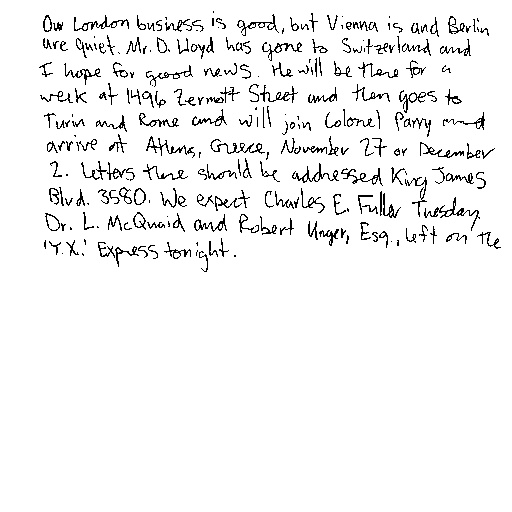 Our London business is good, but Vienna is and Berlin
are quiet. Mr. D. Lloyd has gone to Switzerland and
I hope for good news. He will be there for a
week at 1496 Zermott Street and then goes to
Turin and Rome and will join Colonel Parry and
arrive at Athens, Greece, November 27 or December
2. Letters there should be addressed King James
Blvd. 3580. We expect Charles E. Fuller Tuesday.
Dr. L. McQuaid and Robert Unger, Esq., left on the
'Y.X.' Express tonight.